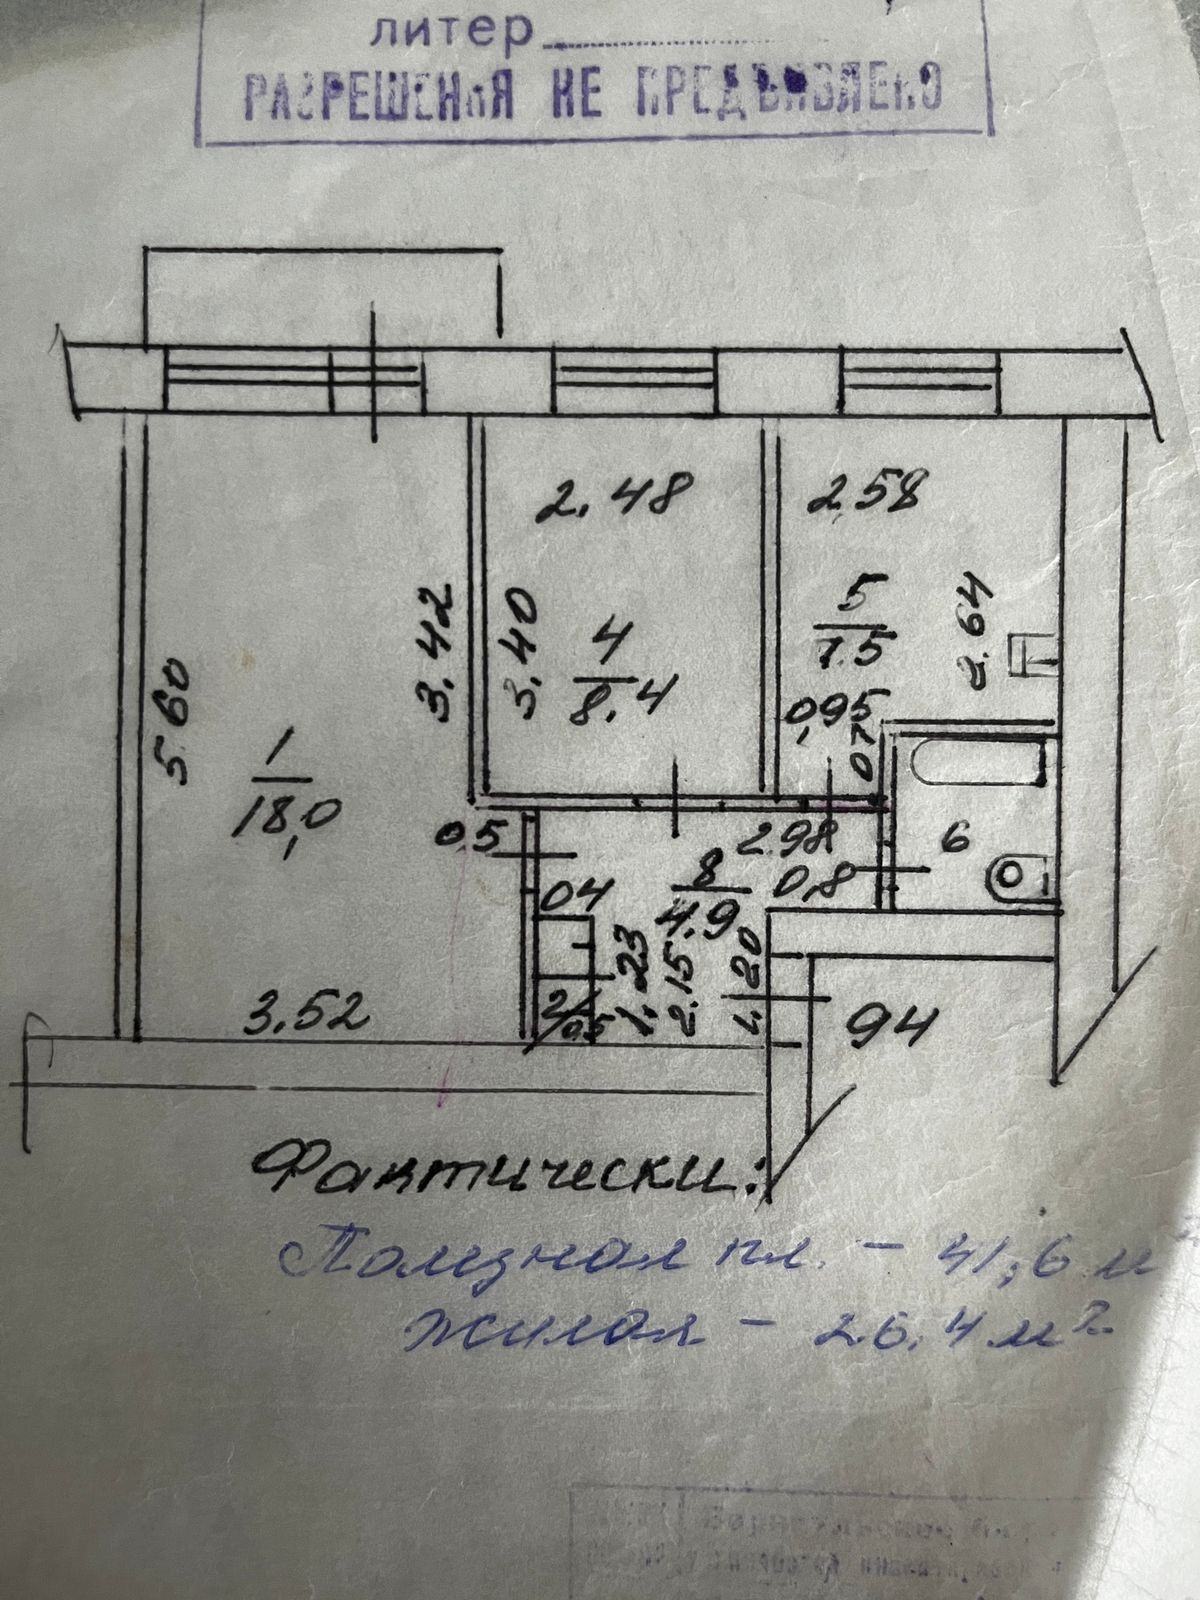 литер
РАЗРЕШЕНИЯ НЕ ПРЕДЪЯВЛЕНО
2.48
2.58
5.60
3.42
3.40
4
8.4
5
7.5
2.64
0,95
0,7
1
18,0
0.5
2.98
6
0.4
8
4.9
0,8
1.23
2.15
1.20
2
0.5
3.52
94
Фактически:
Полезная пл. – 41,6 м
жилая – 26,4 м²